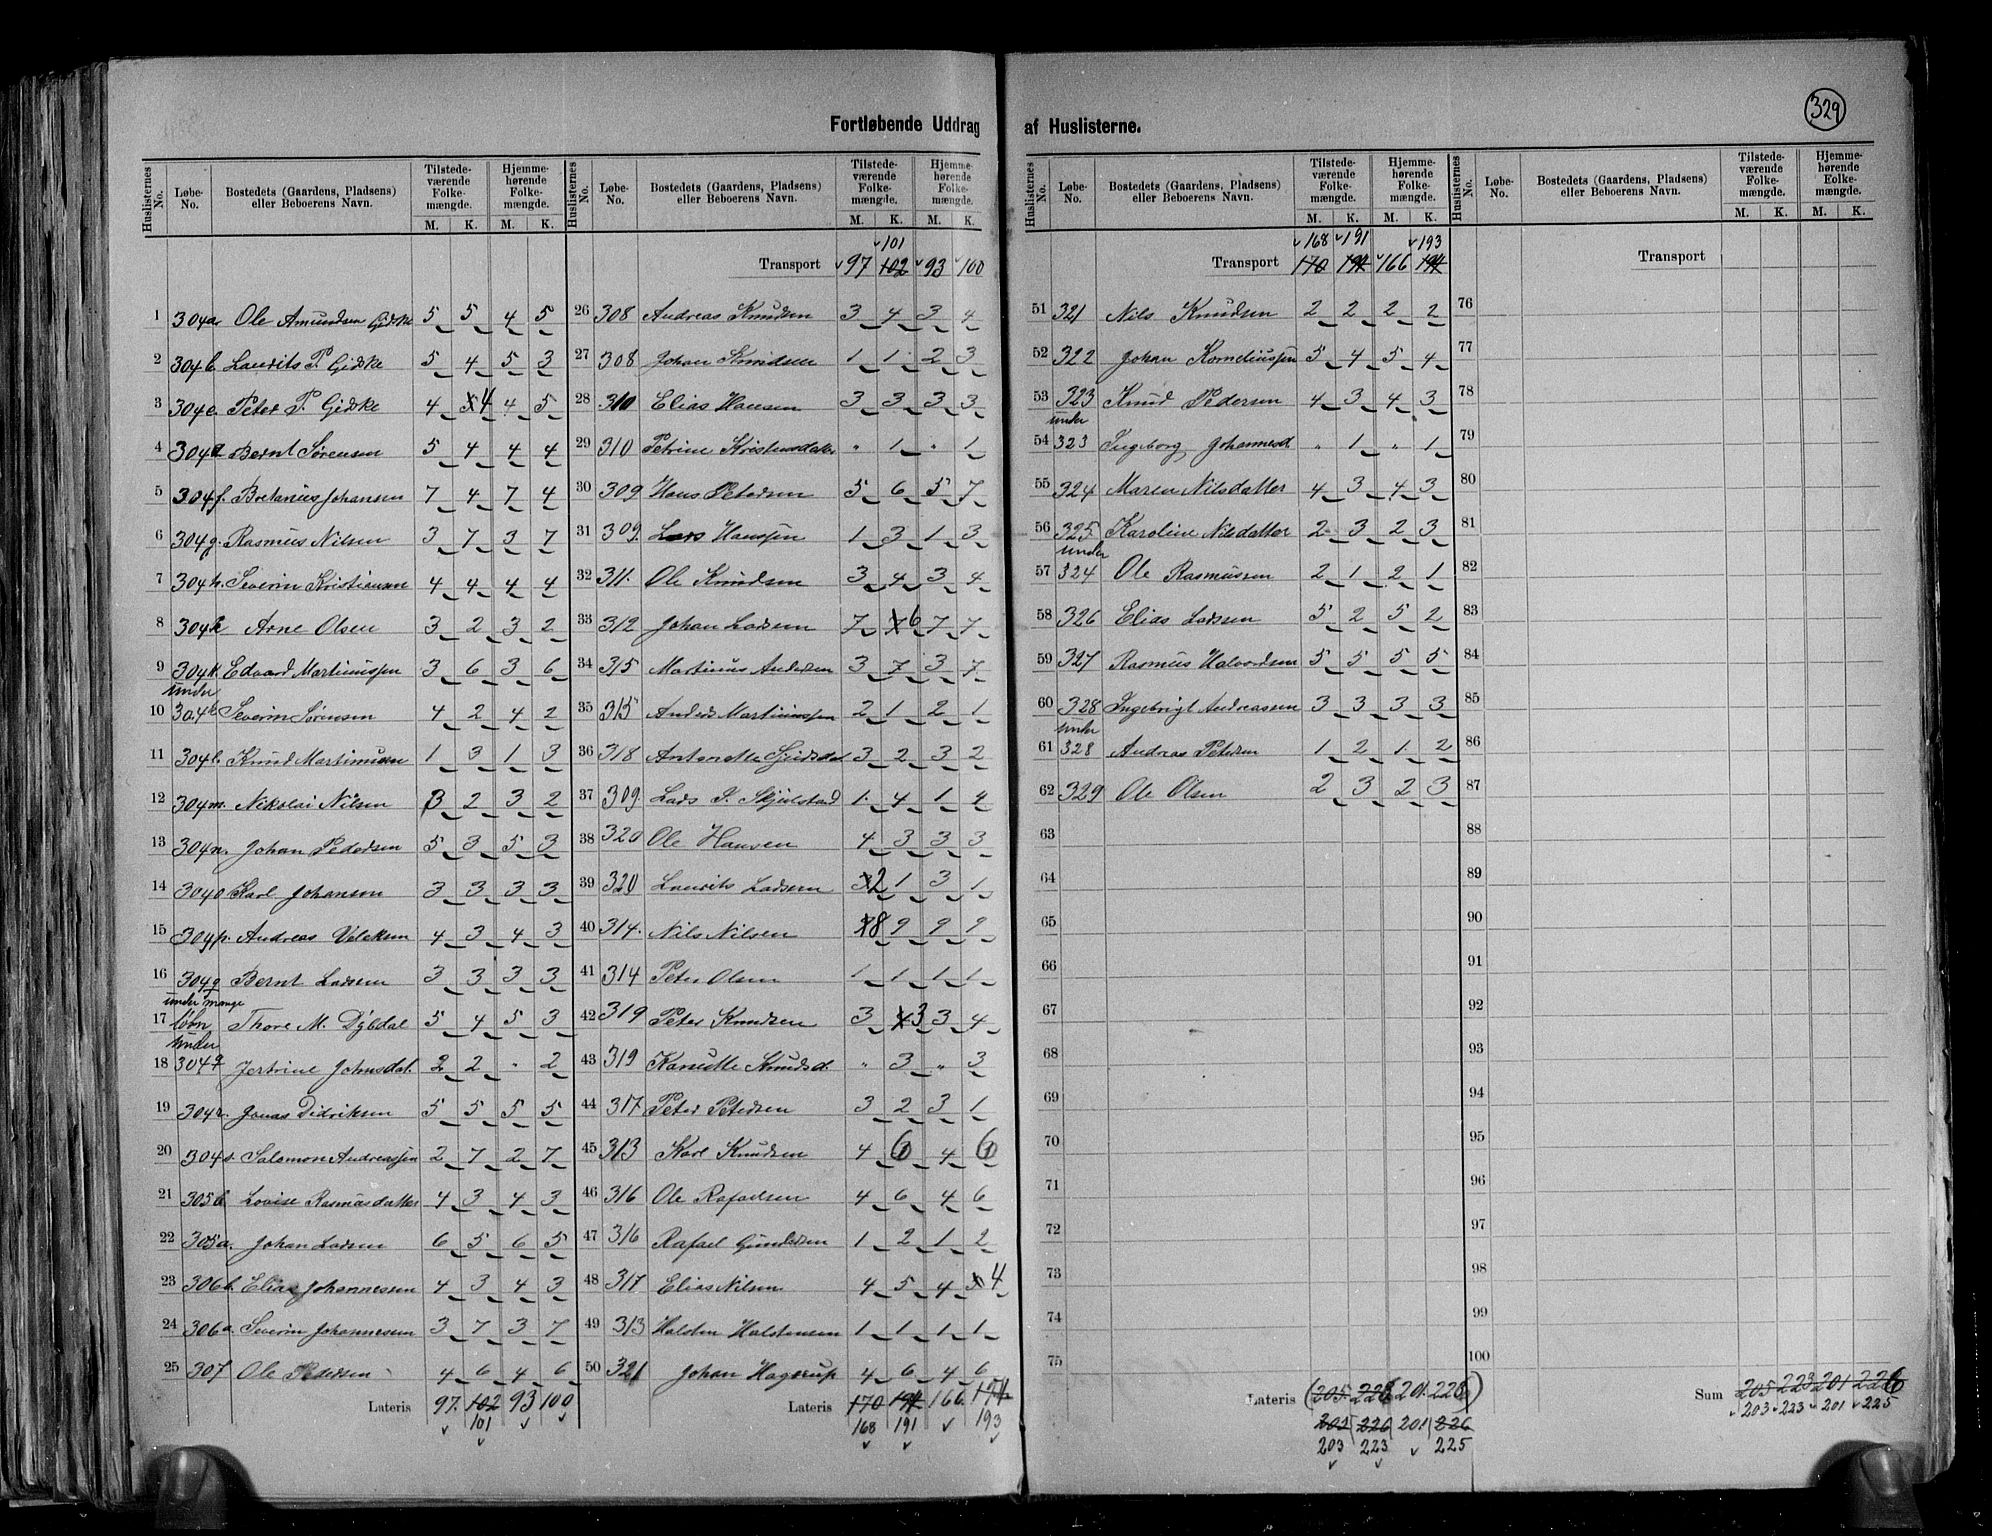 329
Fortløbende Uddrag af Huslisterne.
Huslisternes No. Løbe-No. Bostedets (Gaardens, Pladsens) eller Beboerens Navn. Tilstede-værende Folke-mængde. M. K. Hjemme-hørende Folke-mængde. M. K.
1 304a Ole Amundsen Gidske 5 5 4 5
2 304b Laurits P. Gidske 5 4 5 3
3 304c Peter P. Gidske 4 5 4 4 5
4 304d Bernt Sørensen 5 4 4 4
5 304f. Bretanius Johansen 7 4 7 4
6 304g. Rasmus Nilsen 3 7 3 7
7 304h. Severin Kristiansen 4 4 4 4
8 304i Arne Olsen 3 2 3 2
9 304k Edvard Martinussen 3 6 3 6
under
10 304k Severin Sørensen 4 2 4 2
11 304l Knud Martinusen 1 3 1 3
12 304m. Nikolai Nilsen 3 2 3 2
13 304n. Johan Pedersen 5 3 5 3
14 304o Karl Johansen 3 3 3 3
15 304p. Andreas 4 3 4 3
16 304q Bernt Larsen 3 3 3 3
under mange
17 løbn Thore M. Dybdal 5 4 5 3
under
18 304q Jertrine Johnsdat. 2 2 " 2
19 304r. Jonas Didriksen 5 5 5 5
20 304s. Salomon Andreassen 2 7 2 7
21 305b Lovise Rasmusdatter 4 3 4 3
22 305a. Johan Larsen 6 5 6 5
23 306b. Elias Johannessen 4 3 4 3
24 306a. Severin Johannessen 3 7 3 7
25 307 Ole Pedersen 4 6 4 6
Lateris 97. 102 93 100
101
Huslisternes No. Løbe-No. Bostedets (Gaardens, Pladsens) eller Beboerens Navn. Tilstede-værende Folke-mængde. M. K. Hjemme-hørende Folke-mængde. M. K.
101
Transport 97 102 93 100
26 308 Andreas Knudsen 3 4 3 4
27 308 Johan Knudsen 1 1 2 3
28 310 Elias Hansen 3 3 3 3
29 310 Petrine Kristensdatter " 1 " 1
30 309 Hans Petersen 5 6 5 7
31 309. Lars Hanssen 1 3 1 3
32 311. Ole Knudsen 3 4 3 4
33 312 Johan Larsen 7 7 6 7 7
34 315 Martinus Andersen 3 7 3 7
35 315 Anders Martinussen 2 1 2 1
36 318 Antonette 3 2 3 2
37 309. Lars P. Skjelstad 1 4 1 4
38 320 Ole Hansen 4 3 3 3
39 320 Laurits Larsen 3 2 1 3 1
40 314. Nils Nilsen 8 9 9 9
41 314 Peter Olsen 1 1 1 1
42 319 Peter Knudsen 3 4 3 3 4
43 319 Kanutte Knudsd. " 3 " 3
44 317 Peter Petersen 3 2 3 1
45 313 Karl Knudsen 4 6 4 6
46 316 Ole Rafaelsen 4 6 4 6
47 316 Rafael Gundersen 1 2 1 2
48 317 Elias Nilsen 4 5 4 5 4
49 313 Halsten Halstensen 1 1 1 1
50 321 Johan Hagerup 4 6 4 6
Lateris 170 194 166 194
168 191 193
Huslisternes No. Løbe-No. Bostedets (Gaardens, Pladsens) eller Beboerens Navn. Tilstede-værende Folke-mængde. M. K. Hjemme-hørende Folke-mængde. M. K.
168 191 193
Transport 170 194 166 194
51 321 Nils Knudsen 2 2 2 2
52 322 Johan Korneliussen 5 4 5 4
53 323 Knud Pedersen 4 3 4 3
under
54 323 Ingeborg Johannesd " 1 " 1
55 324 Maren Nilsdatter 4 3 4 3
56 325 Karoline Nilsdatter 2 3 2 3
under
57 324 Ole Rasmussen 2 1 2 1
58 326 Elias Larsen 5 2 5 2
59 327 Rasmus Halvordsen 5 5 5 5
60 328 Ingebrigt Andreassen 3 3 3 3
under
61 328 Andreas Petersen 1 2 1 2
62 329 Ole Olsen 2 3 2 3
63
64
65
66
67
68
69
70
71
72
73
74
75
Lateris (205 228 201 228)
202 226 201 226
203 223 225
Huslisternes No. Løbe-No. Bostedets (Gaardens, Pladsens) eller Beboerens Navn. Tilstede-værende Folke-mængde. M. K. Hjemme-hørende Folke-mængde. M. K.
Transport
76
77
78
79
80
81
82
83
84
85
86
87
88
89
90
91
92
93
94
95
96
97
98
99
100
Sum 205 223 201 226
203 223 201 225